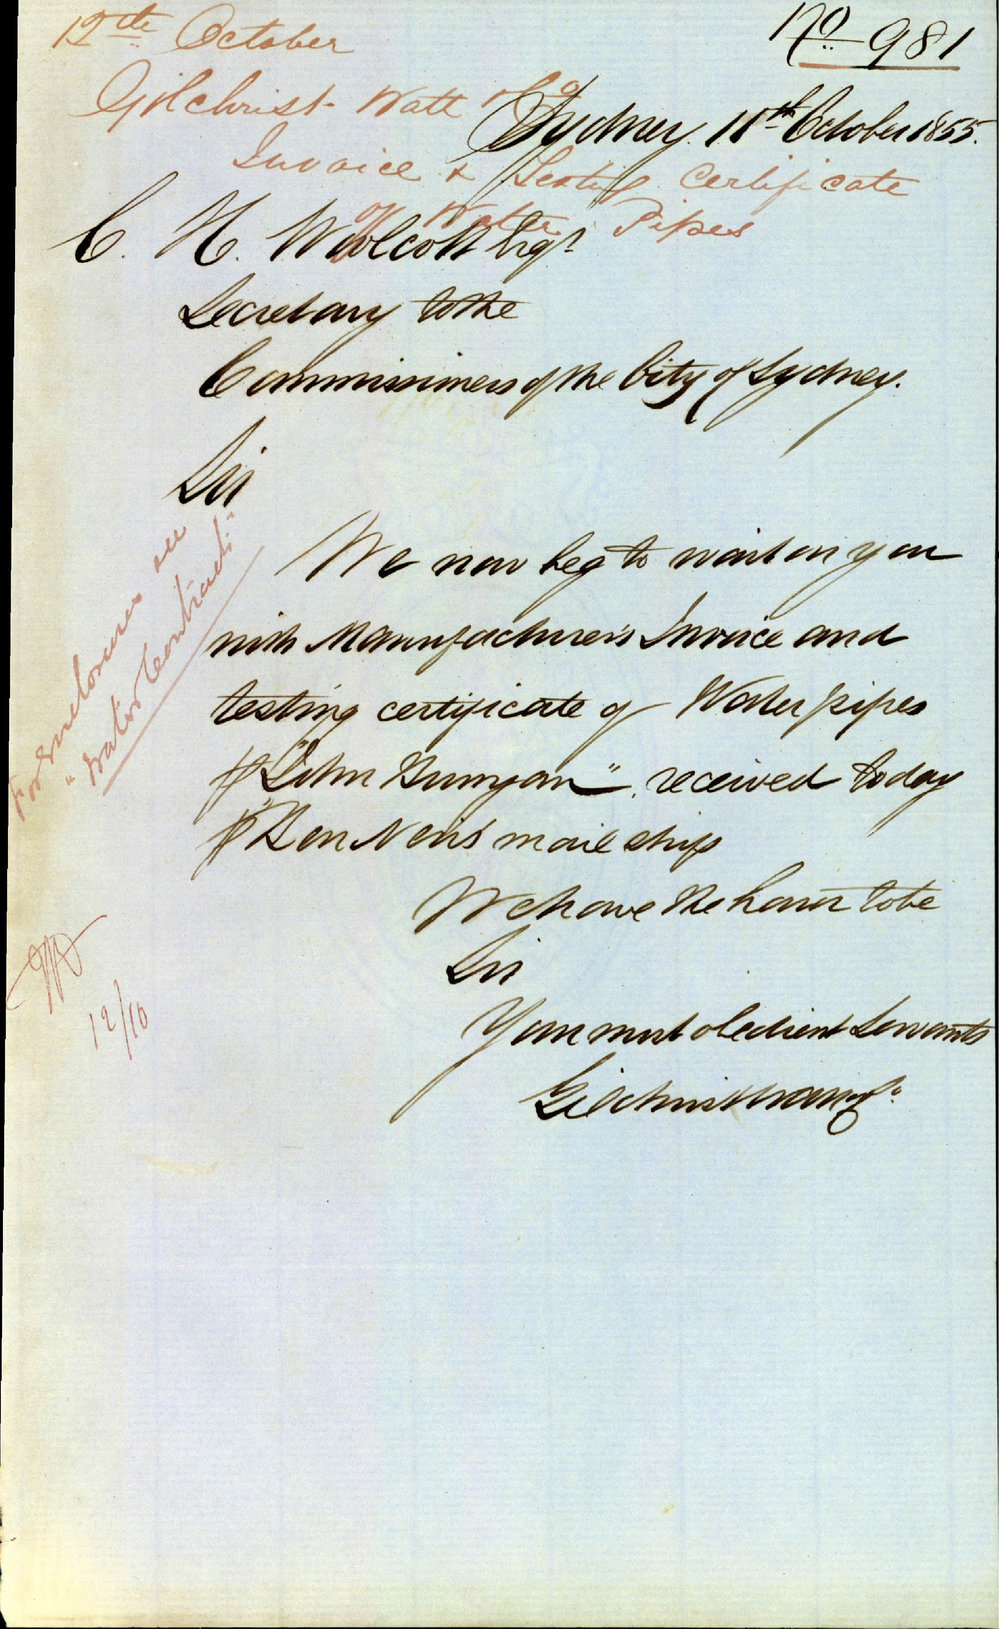 12th October
No 981
Gilchrist Watt & Co
Sydney 11th October 1855.
Invoice & Testing Certificate
of Water Pipes
C. H. Woolcott Esqr
Secretary to the
Commissioners of the City of Sydney.
Sir
We now beg to wait on you
with Manufacturers Invoice and
testing certificate of Water pipes
p "John Bunyan", received today
p "Ben Nevis" mail ship
We have the honor to be
Sir
Your most obedient Servants
Gilchrist Watt & Co
For Enclosures see
"Water Contract"
12/10